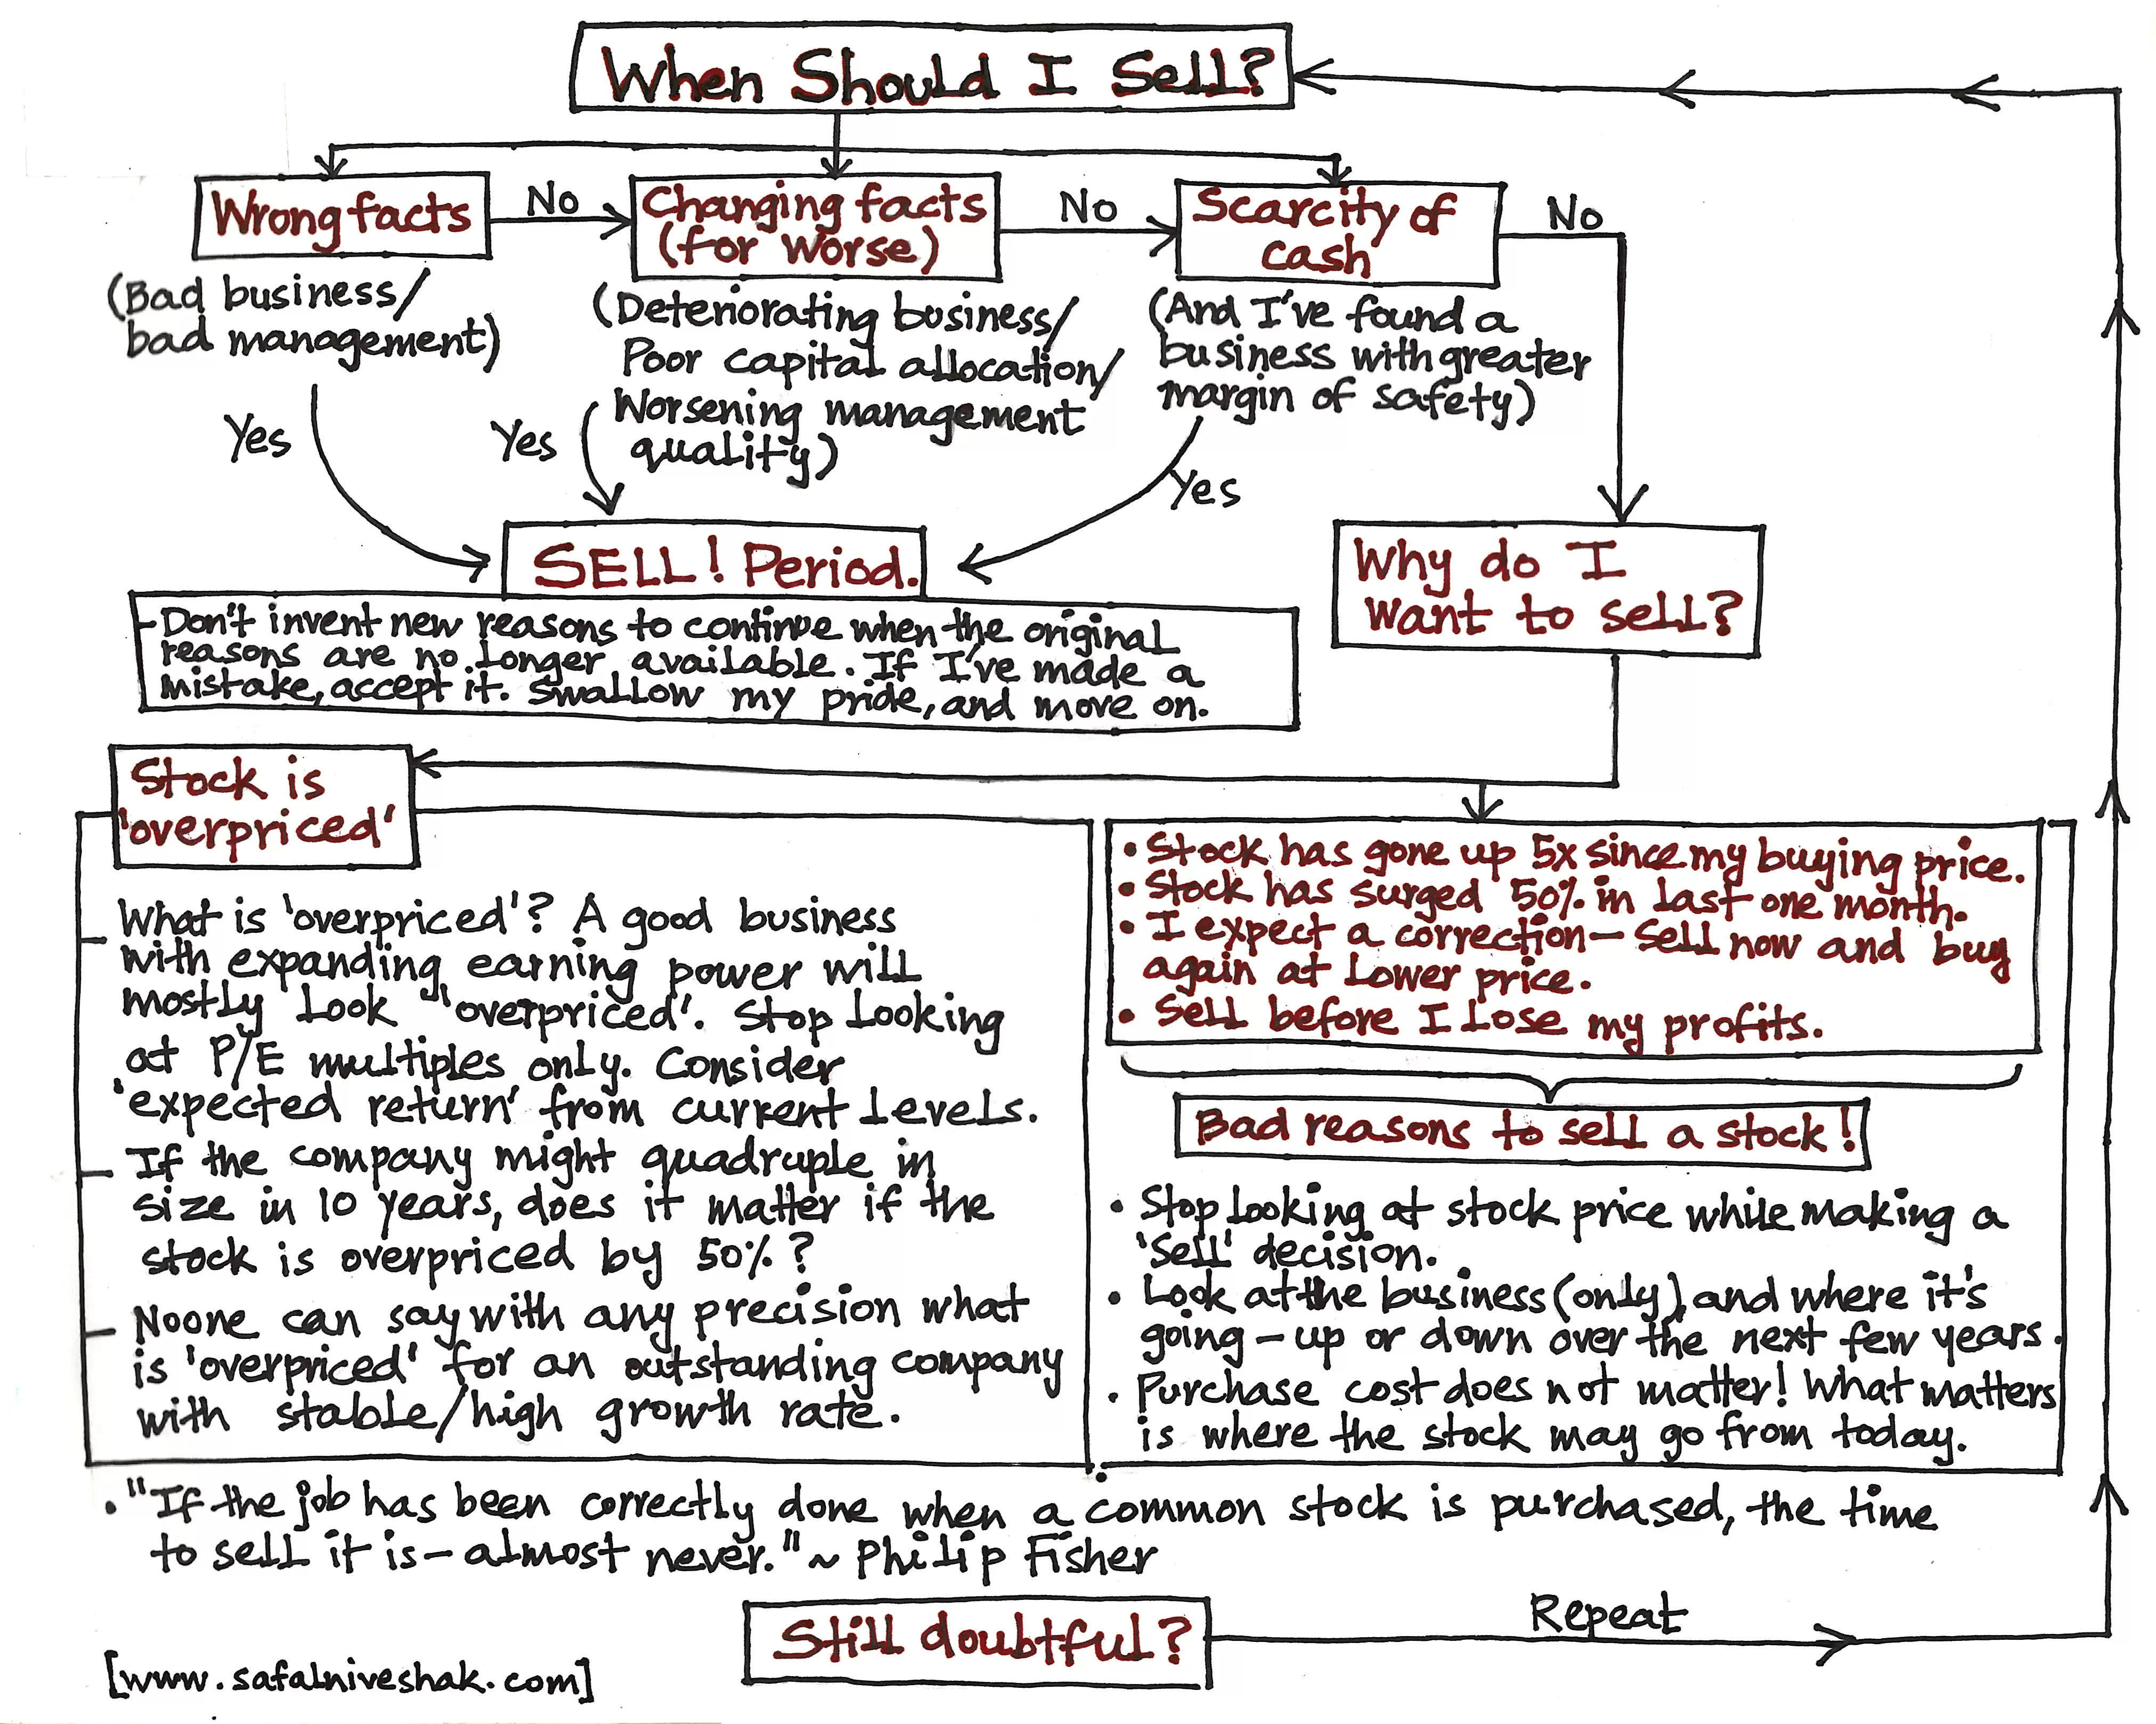 When Should I Sell?
Wrong facts
No
Changing facts
(for worse)
No
Scarcity of
cash
No
(Bad business/
bad management)
(Deteriorating business/
Poor capital allocation/
Worsening management
quality)
(And I've found a
business with greater
margin of safety)
Yes
Yes
Yes
SELL! Period.
- Don't invent new reasons to continue when the original
reasons are no longer available. If I've made a
mistake, accept it. Swallow my pride, and move on.
Why do I
want to sell?
Stock is
'overpriced'
What is 'overpriced'? A good business
with expanding earning power will
mostly look 'overpriced'. Stop looking
at P/E multiples only. Consider
'expected return' from current levels.
If the company might quadruple in
size in 10 years, does it matter if the
stock is overpriced by 50%?
Noone can say with any precision what
is 'overpriced' for an outstanding company
with stable/high growth rate.
• Stock has gone up 5x since my buying price.
• Stock has surged 50% in last one month.
• I expect a correction - Sell now and buy
again at lower price.
• Sell before I lose my profits.
Bad reasons to sell a stock!
• Stop looking at stock price while making a
'Sell' decision.
• Look at the business (only), and where it's
going - up or down over the next few years.
• Purchase cost does not matter! What matters
is where the stock may go from today.
• "If the job has been correctly done when a common stock is purchased, the time
to sell it is - almost never." ~ Philip Fisher
Still doubtful?
Repeat
[www.safalniveshak.com]